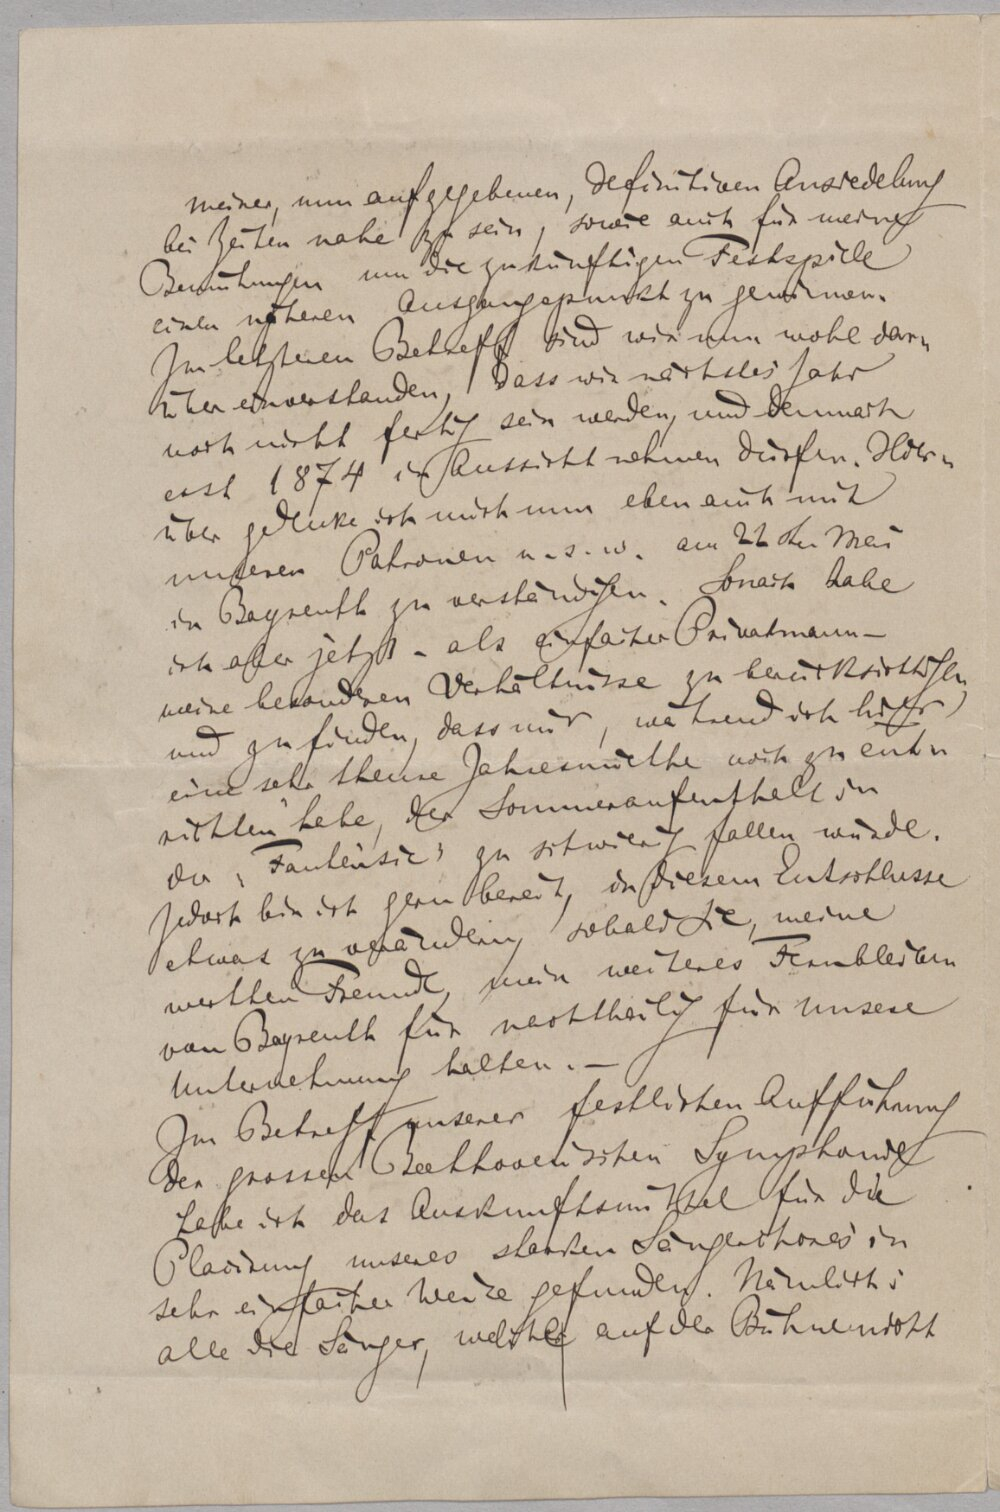 meiner, nun aufgegebenen, definitiven Ansiedelung
bei Zeiten nahe zu sein, sowie auch für meine
Bemühungen um die zukünftigen Festspiele
einen näheren Ausgangspunkt zu gewinnen.
Im letzteren Betreff sind wir nun wohl dar=
über einverstanden, dass wir nächstes Jahr
noch nicht fertig sein werden, und demnach
erst 1874 in Aussicht nehmen dürfen. Hier=
über gedenke ich mich nun eben auch mit
unseren Patronen u. s. w. am 22sten Mai
in Bayreuth zu verständigen. Sonach habe
ich aber jetzt – als einfacher Privatmann –
meine besonderen Verhältnisse zu berücksichtigen,
und zu finden, dass mir, während ich hier
eine sehr theure Jahresmiethe noch zu ent=
richten habe, der Sommeraufenthalt in
der „Fantaisie" zu schwierig fallen würde.
Jedoch bin ich gern bereit, in diesem Entschlusse
etwas zu verändern, sobald Sie, meine
werthen Freunde, mein weiteres Fernbleiben
von Bayreuth für nachtheilig für unsere
Unternehmung halten. –
Im Betreff unserer festlichen Aufführung
der grossen Beethoven'schen Symphonie
habe ich das Auskunftsmittel für die
Placirung unseres starken Sängerchores in
sehr einfacher Weise gefunden. Nämlich:
alle die Sänger, welche auf der Bühne nicht